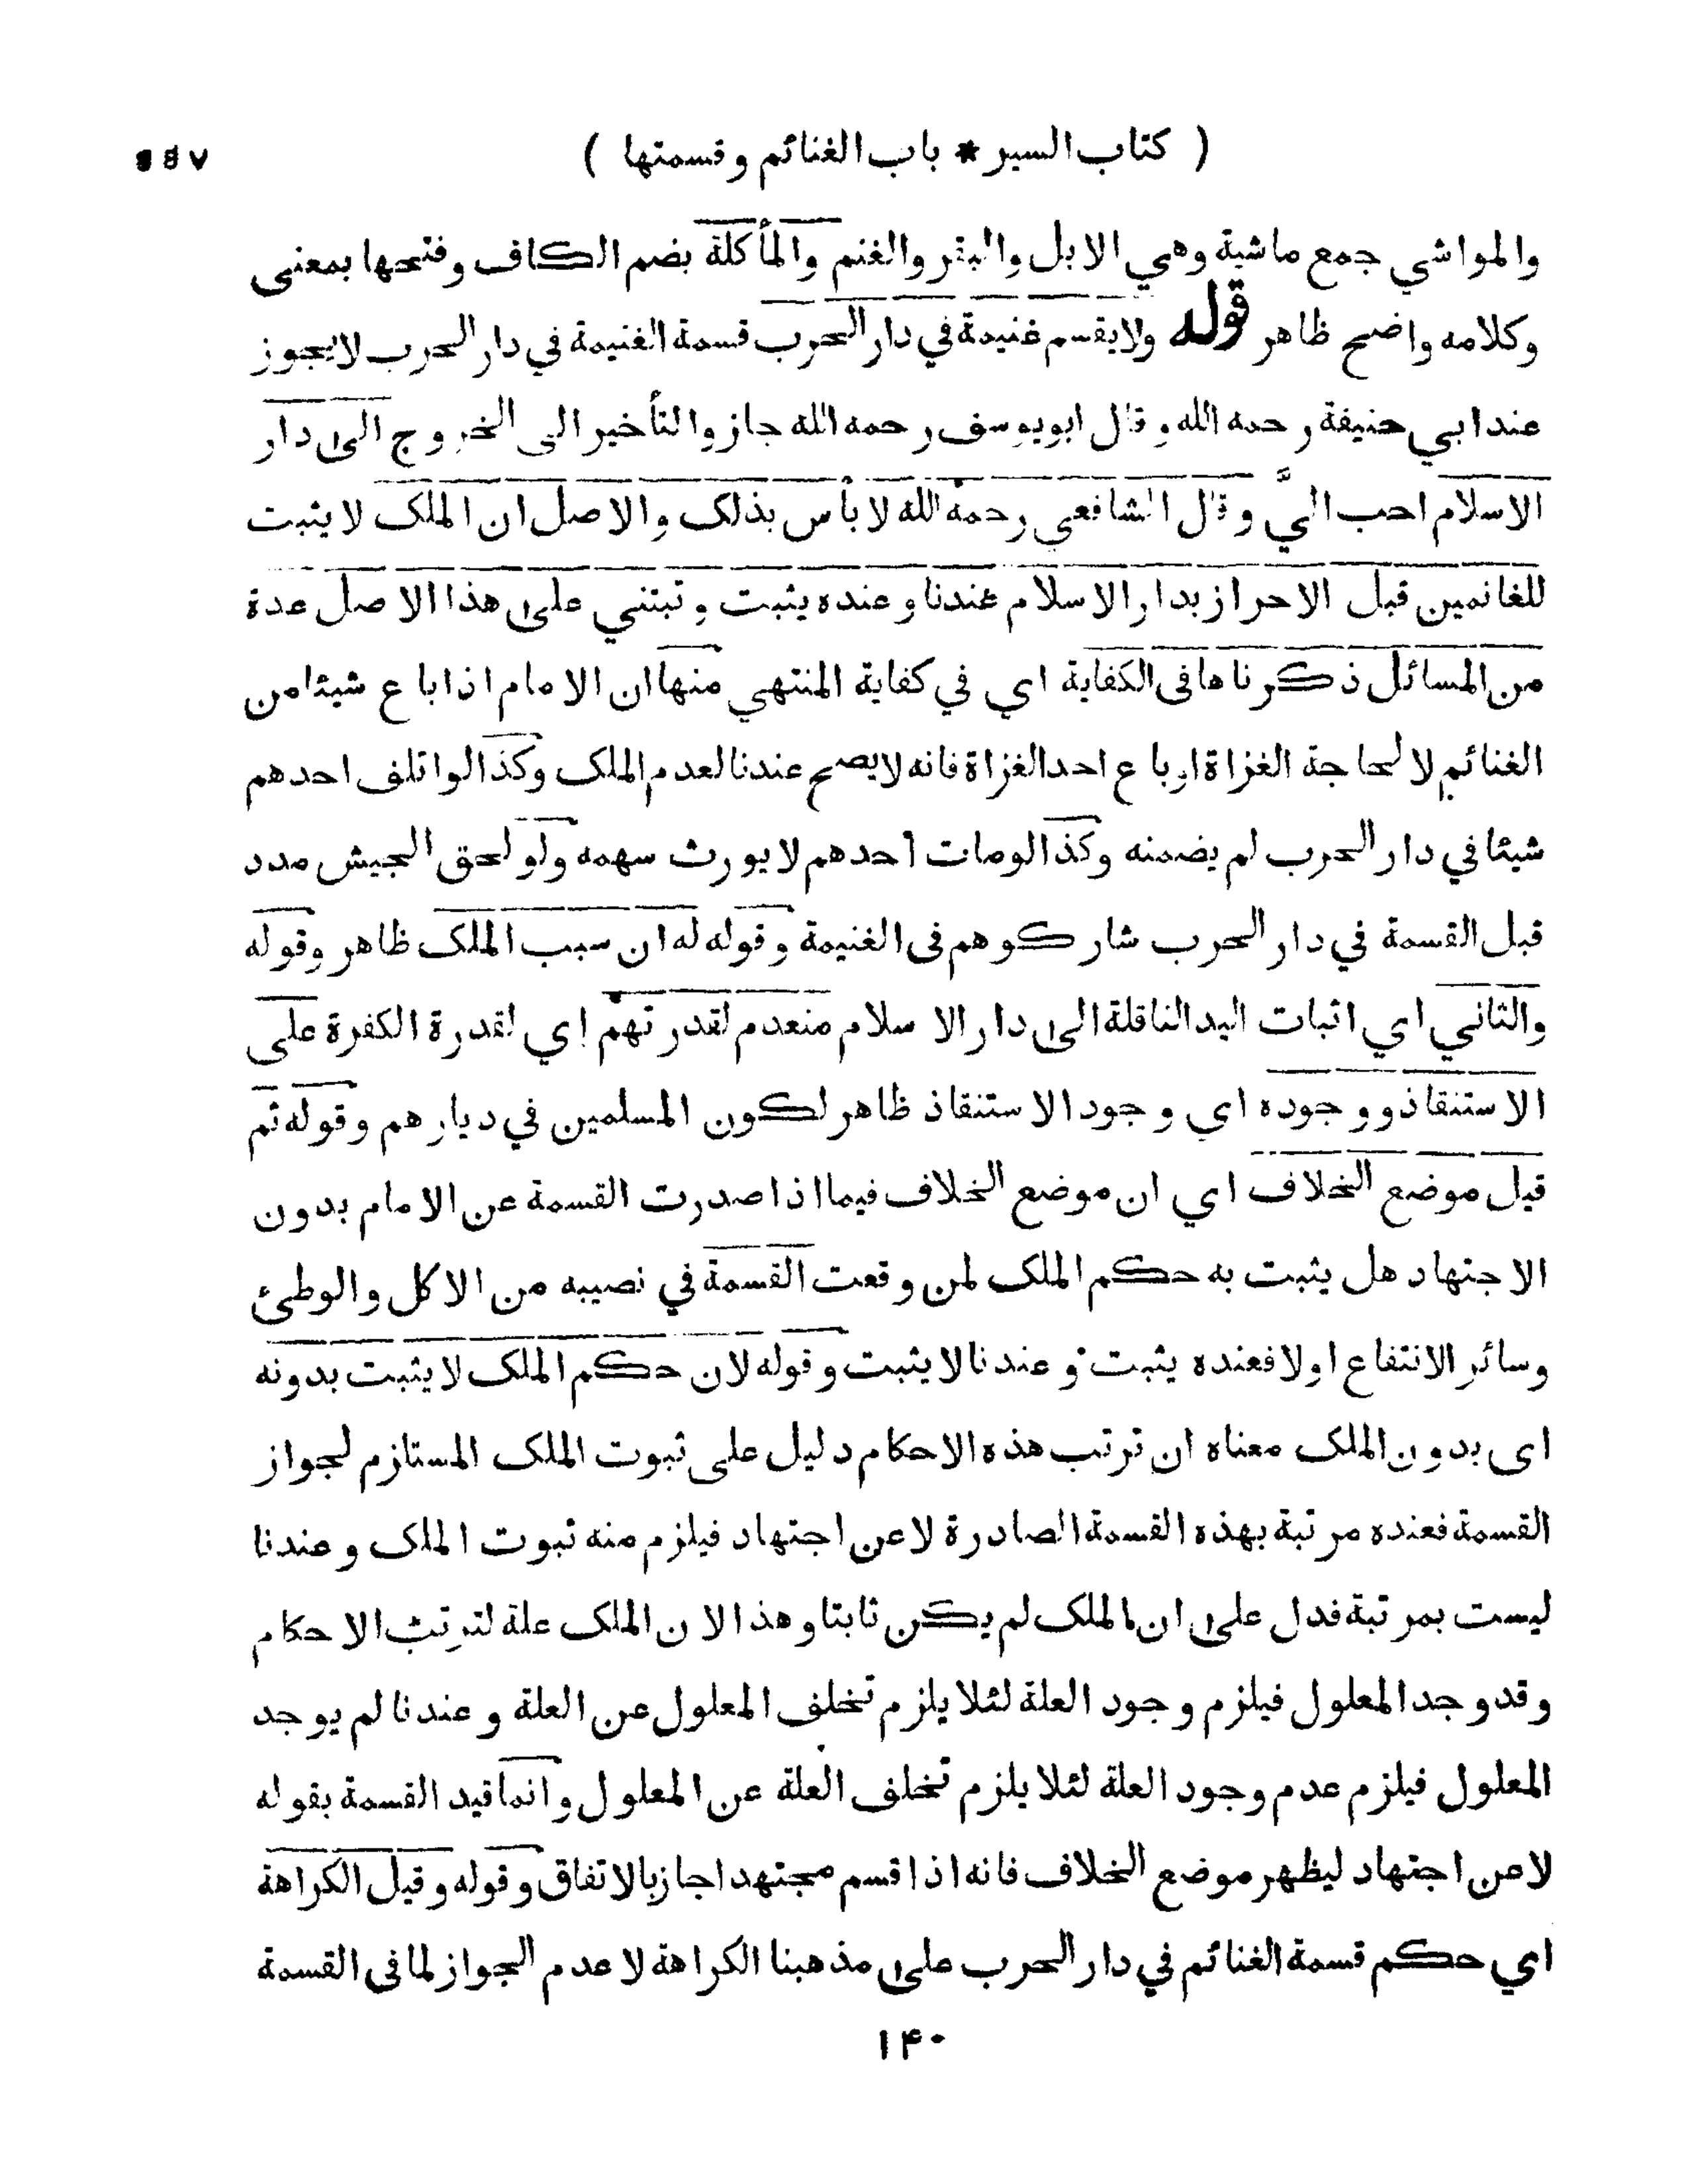 ( كتاب السير * باب الغنائم وقسمتها )
والمواشي جمع ماشية وهي الابل والبقر والغنم والمأكلة بضم الكاف وفتحها بمعنى
وكلامه واضح ظاهر قوله ولايقسم غنيمة في دار الحرب قسمة الغنيمة في دار الحرب لا يجوز
عند ابي حنيفة رحمه الله وقال ابو يوسف رحمه الله جاز والتأخير الى الخروج الى دار
الاسلام احب اليَّ وقال الشافعي رحمه الله لا بأس بذلك والاصل ان الملك لا يثبت
للغانمين قبل الاحراز بدار الاسلام عندنا وعنده يثبت وتبتني على هذا الاصل عدة
من المسائل ذكرناها في الكفاية اي في كفاية المنتهي منها ان الامام اذا باع شيئا من
الغنائم لا لحاجة الغزاة او باع احد الغزاة فانه لا يصح عندنا لعدم الملك وكذا لو اتلف احدهم
شيئا في دار الحرب لم يضمنه وكذا لومات احدهم لا يورث سهمه ولو لحق الجيش مدد
قبل القسمة في دار الحرب شاركوهم في الغنيمة وقوله له ان سبب الملك ظاهر وقوله
والثاني اي اثبات اليد الناقلة الى دار الاسلام منعدم لقدرتهم اي لقدرة الكفرة على
الاستنقاذ ووجوده اي وجود الاستنقاذ ظاهر لكون المسلمين في ديارهم وقوله ثم
قيل موضع الخلاف اي ان موضع الخلاف فيما اذا صدرت القسمة عن الامام بدون
الاجتهاد هل يثبت به حكم الملك لمن وقعت القسمة في نصيبه من الاكل والوطئ
وسائر الانتفاع اولا فعنده يثبت وعندنا لا يثبت وقوله لان حكم الملك لا يثبت بدونه
اى بدون الملك معناه ان ترتب هذه الاحكام دليل على ثبوت الملك المستلزم لجواز
القسمة فعنده مرتبة بهذه القسمة الصادرة لا عن اجتهاد فيلزم منه ثبوت الملك وعندنا
ليست بمرتبة فدل على ان الملك لم يكن ثابتا وهذا لان الملك علة لترتب الاحكام
وقد وجد المعلول فيلزم وجود العلة لئلا يلزم تخلف المعلول عن العلة وعندنا لم يوجد
المعلول فيلزم عدم وجود العلة لئلا يلزم تخلف العلة عن المعلول وانما قيد القسمة بقوله
لا عن اجتهاد ليظهر موضع الخلاف فانه اذا قسم مجتهدا جاز بالاتفاق وقوله وقيل الكراهة
اي حكم قسمة الغنائم في دار الحرب على مذهبنا الكراهة لا عدم الجواز لما في القسمة
۱۴۰